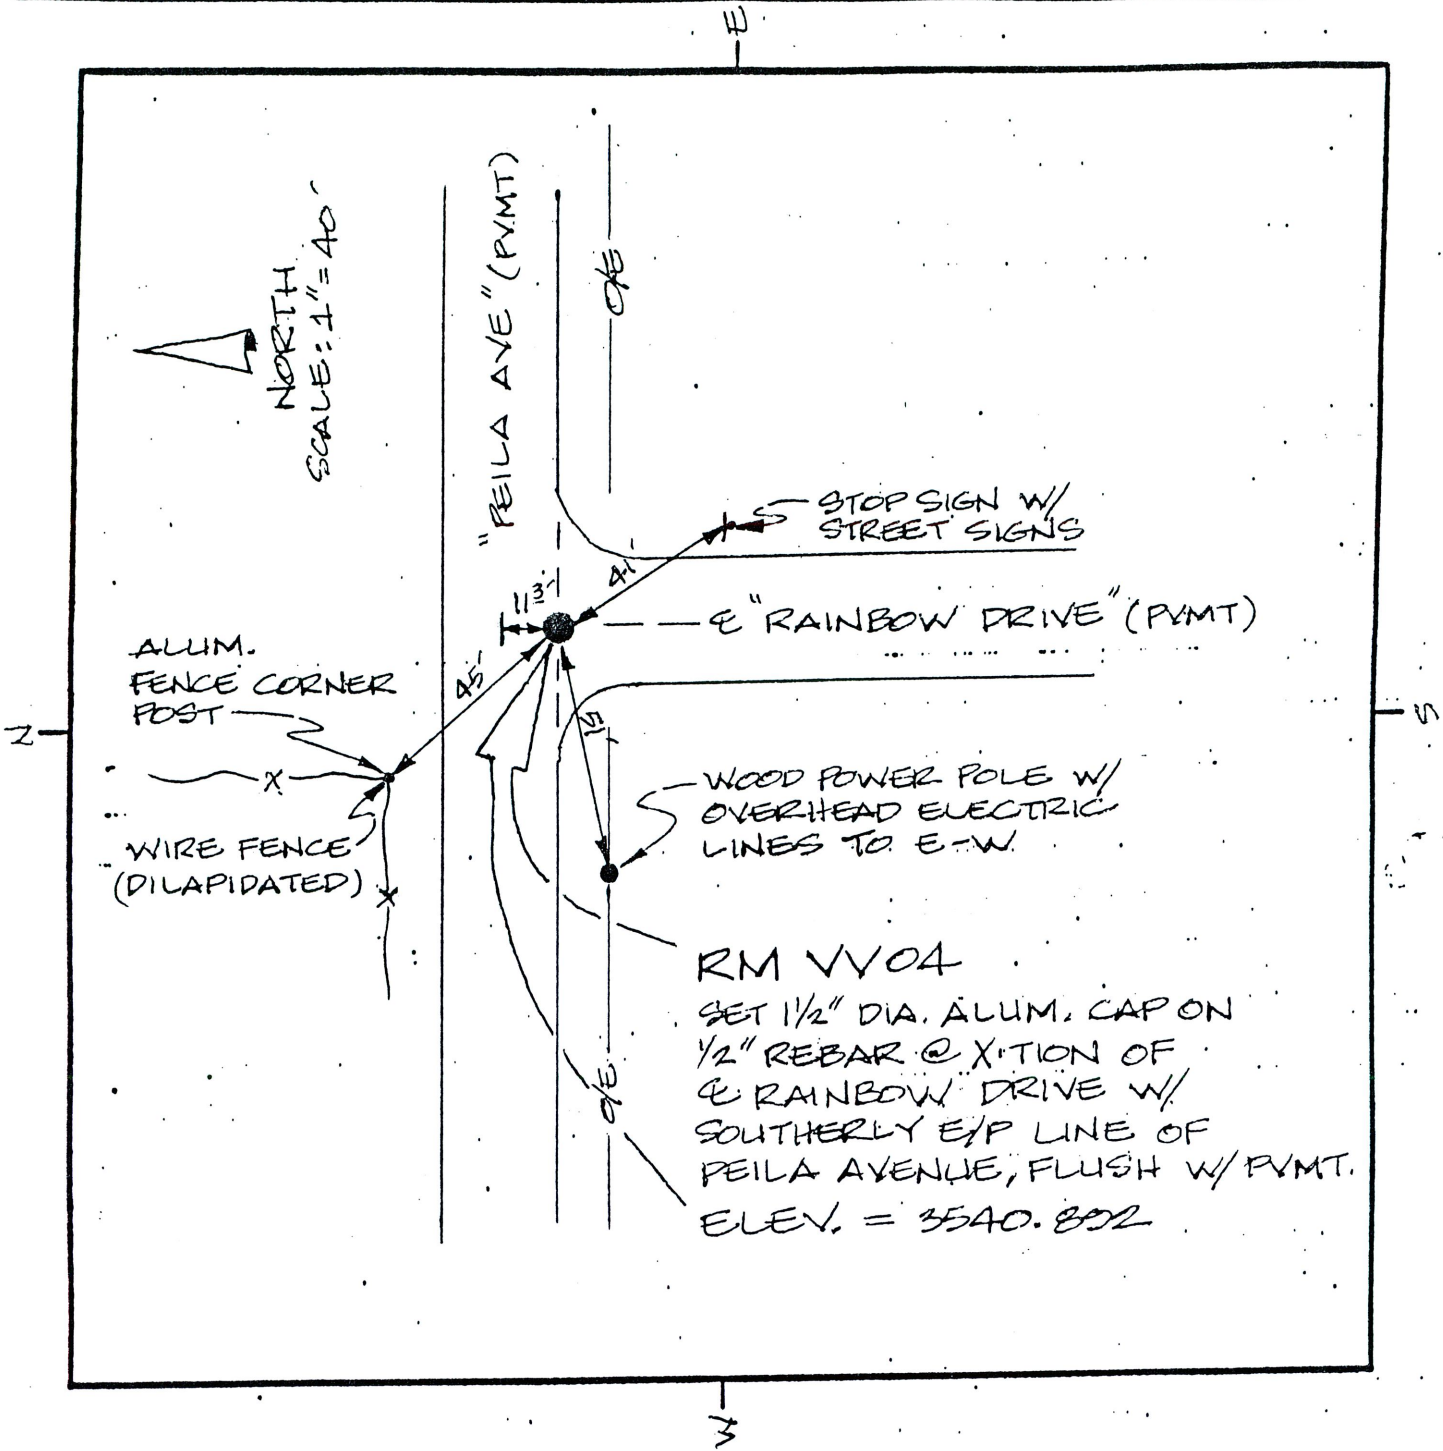 E
NORTH
SCALE: 1"=40'
"PEILA AVE" (PVMT)
O/E
STOP SIGN W/
STREET SIGNS
41'
11³'
℄ "RAINBOW DRIVE" (PVMT)
ALUM.
FENCE CORNER
POST
45'
51'
N
S
X
WIRE FENCE
(DILAPIDATED)
X
WOOD POWER POLE W/
OVERHEAD ELECTRIC
LINES TO E-W
RM VV04
SET 1½" DIA. ALUM. CAP ON
½" REBAR @ X·TION OF
℄ RAINBOW DRIVE W/
SOUTHERLY E/P LINE OF
PEILA AVENUE, FLUSH W/ PVMT.
ELEV. = 3540.892
O/E
W